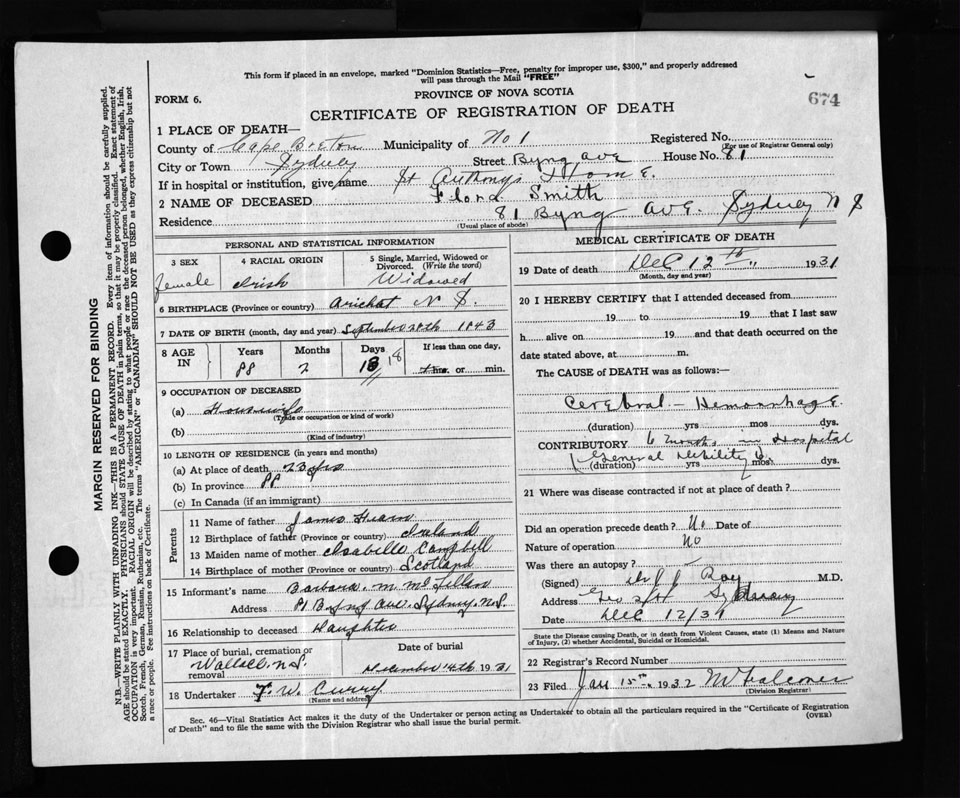 This form if placed in an envelope, marked "Dominion Statistics—Free, penalty for improper use, $300," and properly addressed
will pass through the Mail "FREE"
674
FORM 6.
PROVINCE OF NOVA SCOTIA
CERTIFICATE OF REGISTRATION OF DEATH
1 PLACE OF DEATH—
County of Cape Breton Municipality of No 1 Registered No.
(For use of Registrar General only)
City or Town Sydney Street Byng Ave House No. 81
If in hospital or institution, give name St Anthony's Home.
2 NAME OF DECEASED Flora Smith
Residence 81 Byng Ave. Sydney N S
(Usual place of abode)
PERSONAL AND STATISTICAL INFORMATION
3 SEX
female
4 RACIAL ORIGIN
Irish
5 Single, Married, Widowed or
Divorced. (Write the word)
Widowed
6 BIRTHPLACE (Province or country) Arichat N S.
7 DATE OF BIRTH (month, day and year) September 1843
8 AGE
IN
Years
88
Months
2
Days
18 18
If less than one day,
hrs. or min.
9 OCCUPATION OF DECEASED
(a) Housewife
(Trade or occupation or kind of work)
(b)
(Kind of industry)
10 LENGTH OF RESIDENCE (in years and months)
(a) At place of death 23 yrs
(b) In province 88
(c) In Canada (if an immigrant)
Parents
11 Name of father James Hearn
12 Birthplace of father (Province or country) Ireland
13 Maiden name of mother Isabelle Campbell
14 Birthplace of mother (Province or country) Scotland
15 Informant's name Barbara M
Address 81 Byng Ave. Sydney N.S.
16 Relationship to deceased Daughter
17 Place of burial, cremation or
removal
N.S.
Date of burial
December 14th 1931
18 Undertaker F. W. Curry
(Name and address)
MEDICAL CERTIFICATE OF DEATH
19 Date of death Dec 12th 1931
(Month, day and year)
20 I HEREBY CERTIFY that I attended deceased from
19 to 19 that I last saw
h alive on 19 and that death occurred on the
date stated above, at m.
The CAUSE of DEATH was as follows:—
Cerebral — Hemorrhage.
(duration) yrs mos dys.
CONTRIBUTORY 6 months in Hospital
General Debility
(duration) yrs mos dys.
21 Where was disease contracted if not at place of death?
Did an operation precede death? No Date of
Nature of operation No
Was there an autopsy?
(Signed) Roy M.D.
Address Sydney
Date Dec 12/31
State the Disease causing Death, or in death from Violent Causes, state (1) Means and Nature
of Injury, (2) whether Accidental, Suicidal or Homicidal.
22 Registrar's Record Number
23 Filed Jan 15th 1932
(Division Registrar)
Sec. 46—Vital Statistics Act makes it the duty of the Undertaker or person acting as Undertaker to obtain all the particulars required in the "Certificate of Registration
of Death" and to file the same with the Division Registrar who shall issue the burial permit.
(OVER)
MARGIN RESERVED FOR BINDING
N.B.—WRITE PLAINLY WITH UNFADING INK—THIS IS A PERMANENT RECORD. Every item of information should be carefully supplied.
AGE should be stated EXACTLY. PHYSICIANS should STATE CAUSE OF DEATH in plain terms, so that it may be properly classified. Exact statement of
OCCUPATION is very important. RACIAL ORIGIN will be described by stating to what people or race the deceased person belonged, whether English, Irish,
Scotch, French, German, Russian, Ruthenian, etc. The terms "AMERICAN" or "CANADIAN" SHOULD NOT BE USED as they express citizenship but not
a race or people. See instructions on back of Certificate.